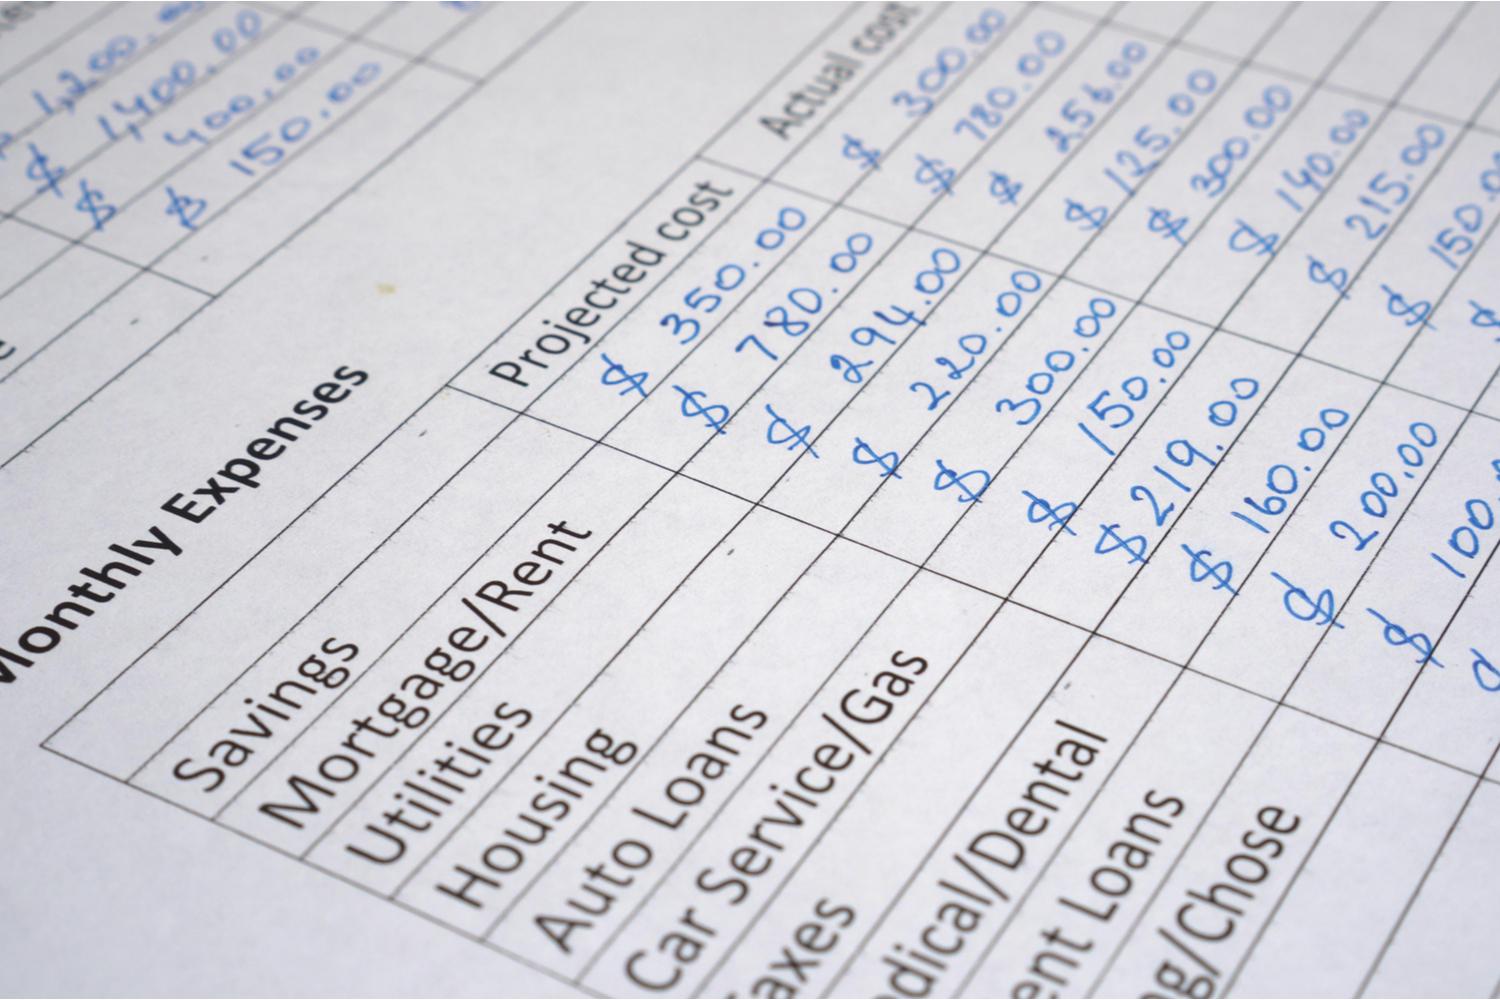 1,200.
$ 1,400.00
$ 400.00
$ 150.00
Monthly Expenses
Projected cost Actual cost
Savings $ 350.00 $ 300.00
Mortgage/Rent $ 780.00 $ 780.00
Utilities $ 294.00 $ 256.00
Housing $ 220.00 $ 125.00
Auto Loans $ 300.00 $ 300.00
Car Service/Gas $ 150.00 $ 140.00
Taxes $ 219.00 $ 215.00
dical/Dental $ 160.00 $ 150.0
ent Loans $ 200.00 $
g/Chose $ 100.